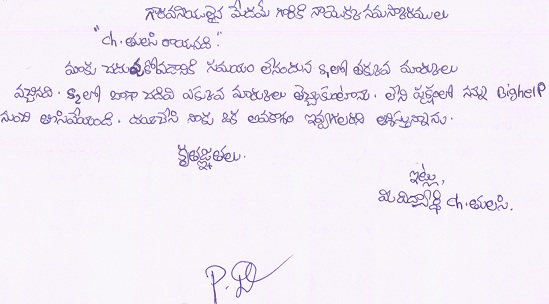 గౌరవనీయులైన మేడమ్ గారికి నాయొక్క నమస్కారములు
"ch. తులసి రాయునది."
మాకు చదువుకోవడానికి సమయం లేనందున S₁లో తక్కువ మార్కులు
వచ్చినవి. S₂లో బాగా చదివి ఎక్కువ మార్కులు తెచ్చుకుంటాను. లేని పక్షంలో నన్ను BigHelP
నుంచి తీసివేయండి. దయచేసి నాకు ఒక అవకాశం ఇవ్వగలరని ఆశిస్తున్నాను.
కృతజ్ఞతలు.
ఇట్లు,
మీ విద్యార్థి ch. తులసి.